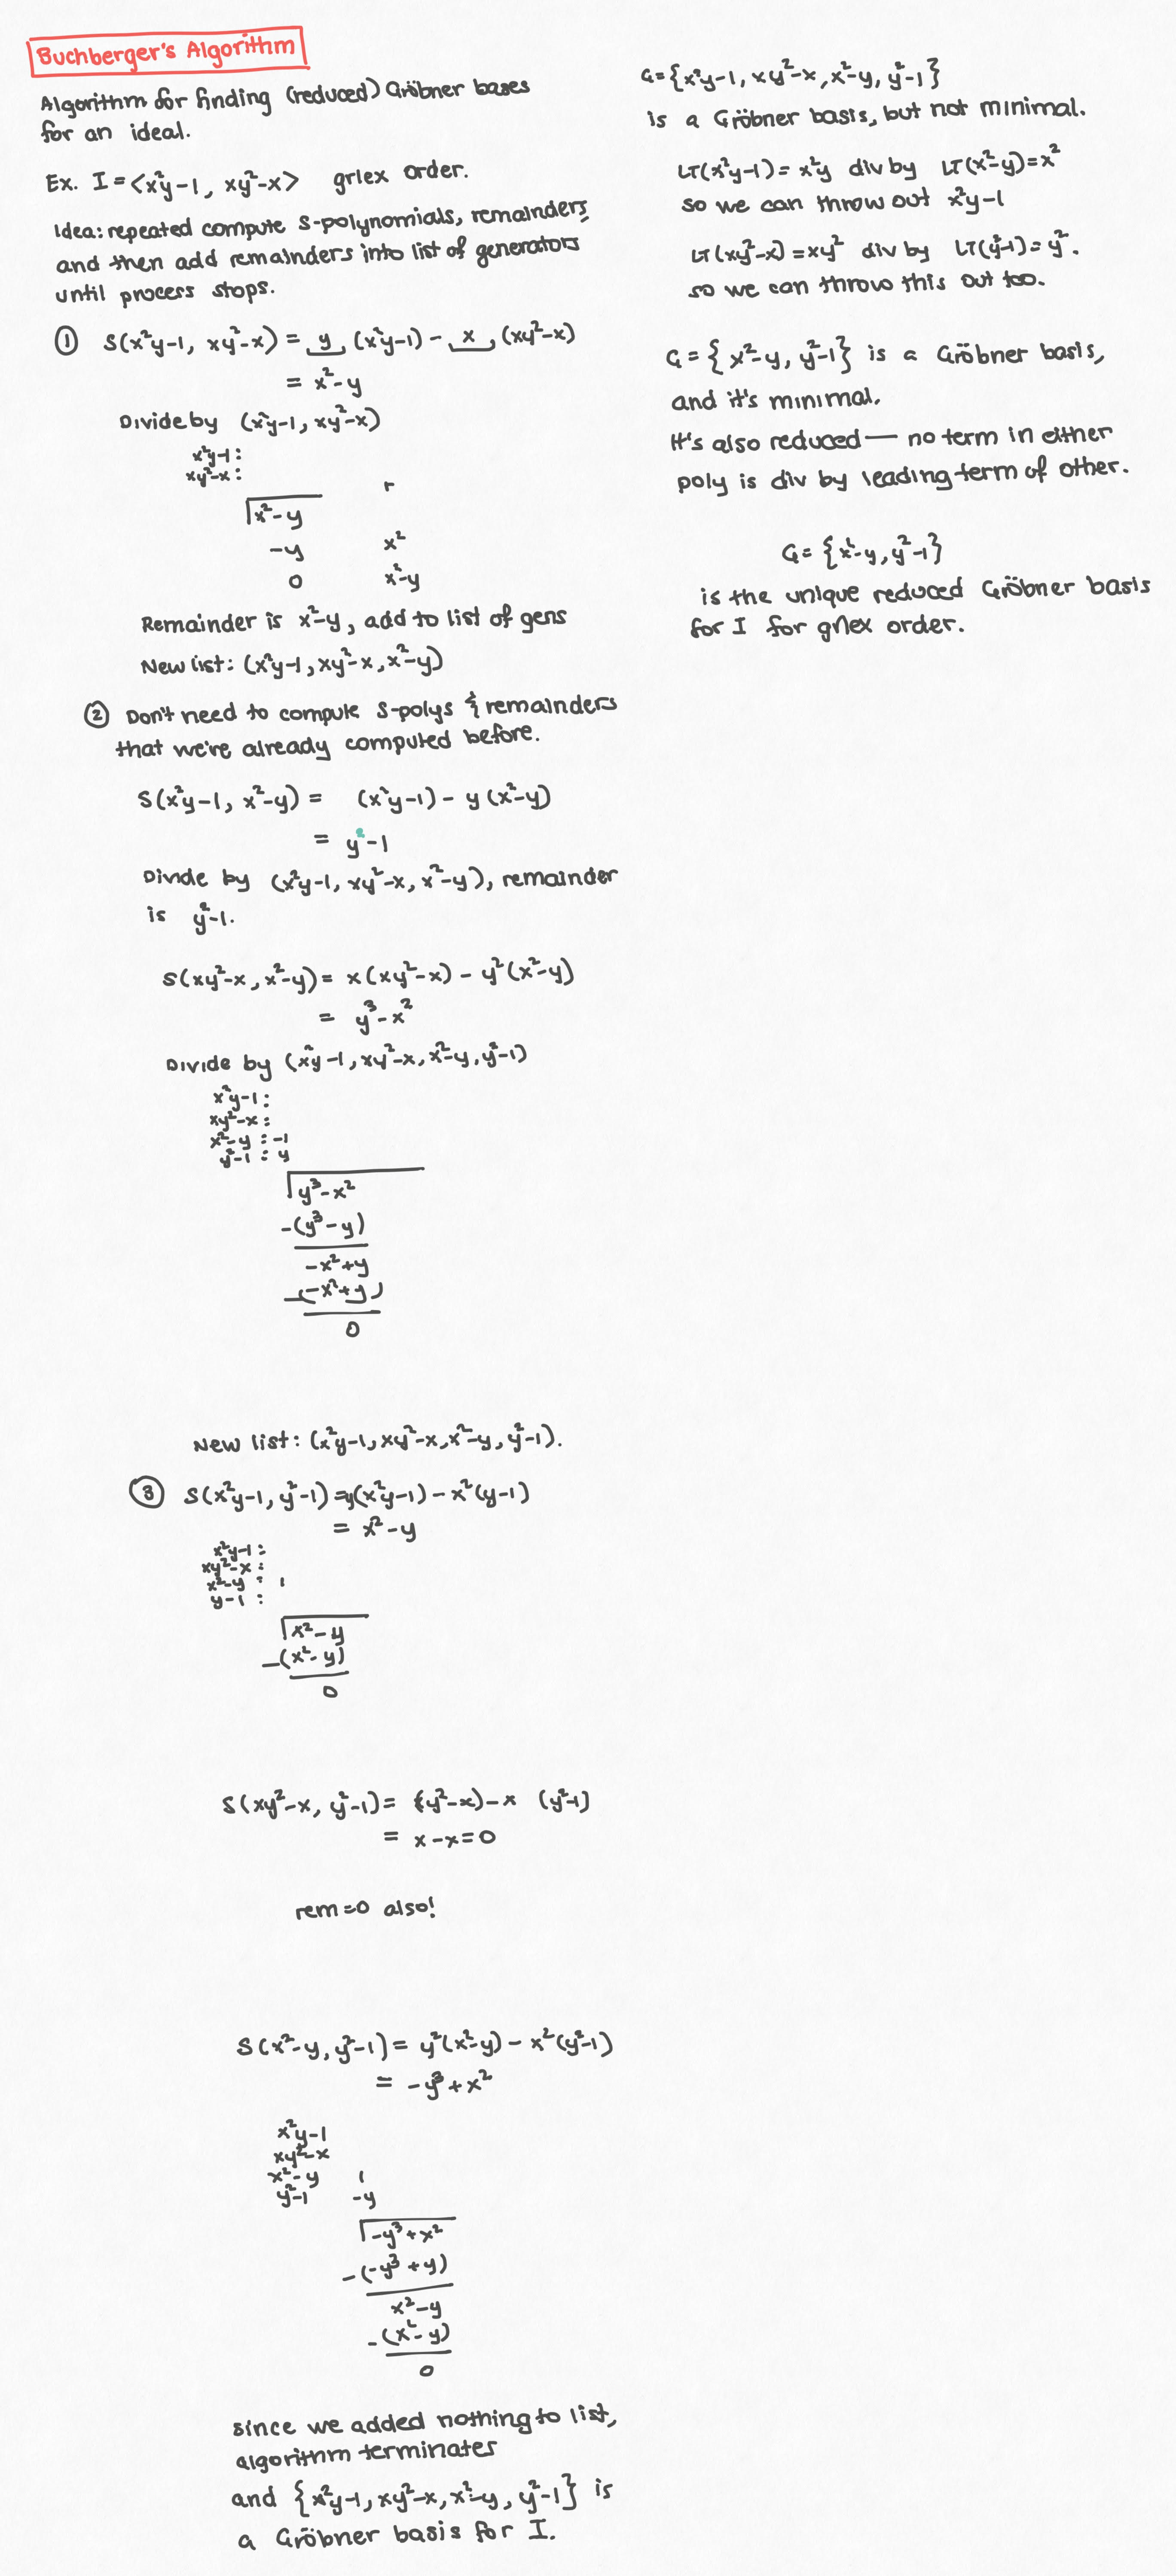 Buchberger's Algorithm
Algorithm for finding (reduced) Gröbner bases
for an ideal.
Ex. I = <x²y-1, xy²-x> grlex order.
Idea: repeated compute S-polynomials, remainders,
and then add remainders into list of generators
until process stops.
① S(x²y-1, xy²-x) = y (x²y-1) - x (xy²-x)
= x²-y
Divide by (x²y-1, xy²-x)
x²y-1:
xy²-x:
r
x²-y
-y x²
0 x²-y
Remainder is x²-y, add to list of gens
New list: (x²y-1, xy²-x, x²-y)
② Don't need to compute S-polys & remainders
that we've already computed before.
S(x²y-1, x²-y) = (x²y-1) - y(x²-y)
= y²-1
Divide by (x²y-1, xy²-x, x²-y), remainder
is y²-1.
S(xy²-x, x²-y) = x(xy²-x) - y²(x²-y)
= y³-x²
Divide by (x²y-1, xy²-x, x²-y, y²-1)
x²y-1:
xy²-x:
x²-y : -1
y²-1 : y
y³-x²
-(y³-y)
-x²+y
-(-x²+y)
0
New list: (x²y-1, xy²-x, x²-y, y²-1).
③ S(x²y-1, y²-1) = y(x²y-1) - x²(y-1)
= x²-y
x²y-1:
xy²-x:
x²-y : 1
y-1 :
x²-y
-(x²-y)
0
S(xy²-x, y²-1) = (y²-x) - x (y²-1)
= x-x=0
rem=0 also!
S(x²-y, y²-1) = y²(x²-y) - x²(y²-1)
= -y³+x²
x²y-1
xy²-x
x²-y 1
y²-1 -y
-y³+x²
-(-y³+y)
x²-y
-(x²-y)
0
since we added nothing to list,
algorithm terminates
and {x²y-1, xy²-x, x²-y, y²-1} is
a Gröbner basis for I.
G={x²y-1, xy²-x, x²-y, y²-1}
is a Gröbner basis, but not minimal.
LT(x²y-1)=x²y div by LT(x²-y)=x²
so we can throw out x²y-1
LT(xy²-x)=xy² div by LT(y²-1)=y².
so we can throw this out too.
G={x²-y, y²-1} is a Gröbner basis,
and it's minimal.
It's also reduced — no term in either
poly is div by leading term of other.
G={x²-y, y²-1}
is the unique reduced Gröbner basis
for I for grlex order.